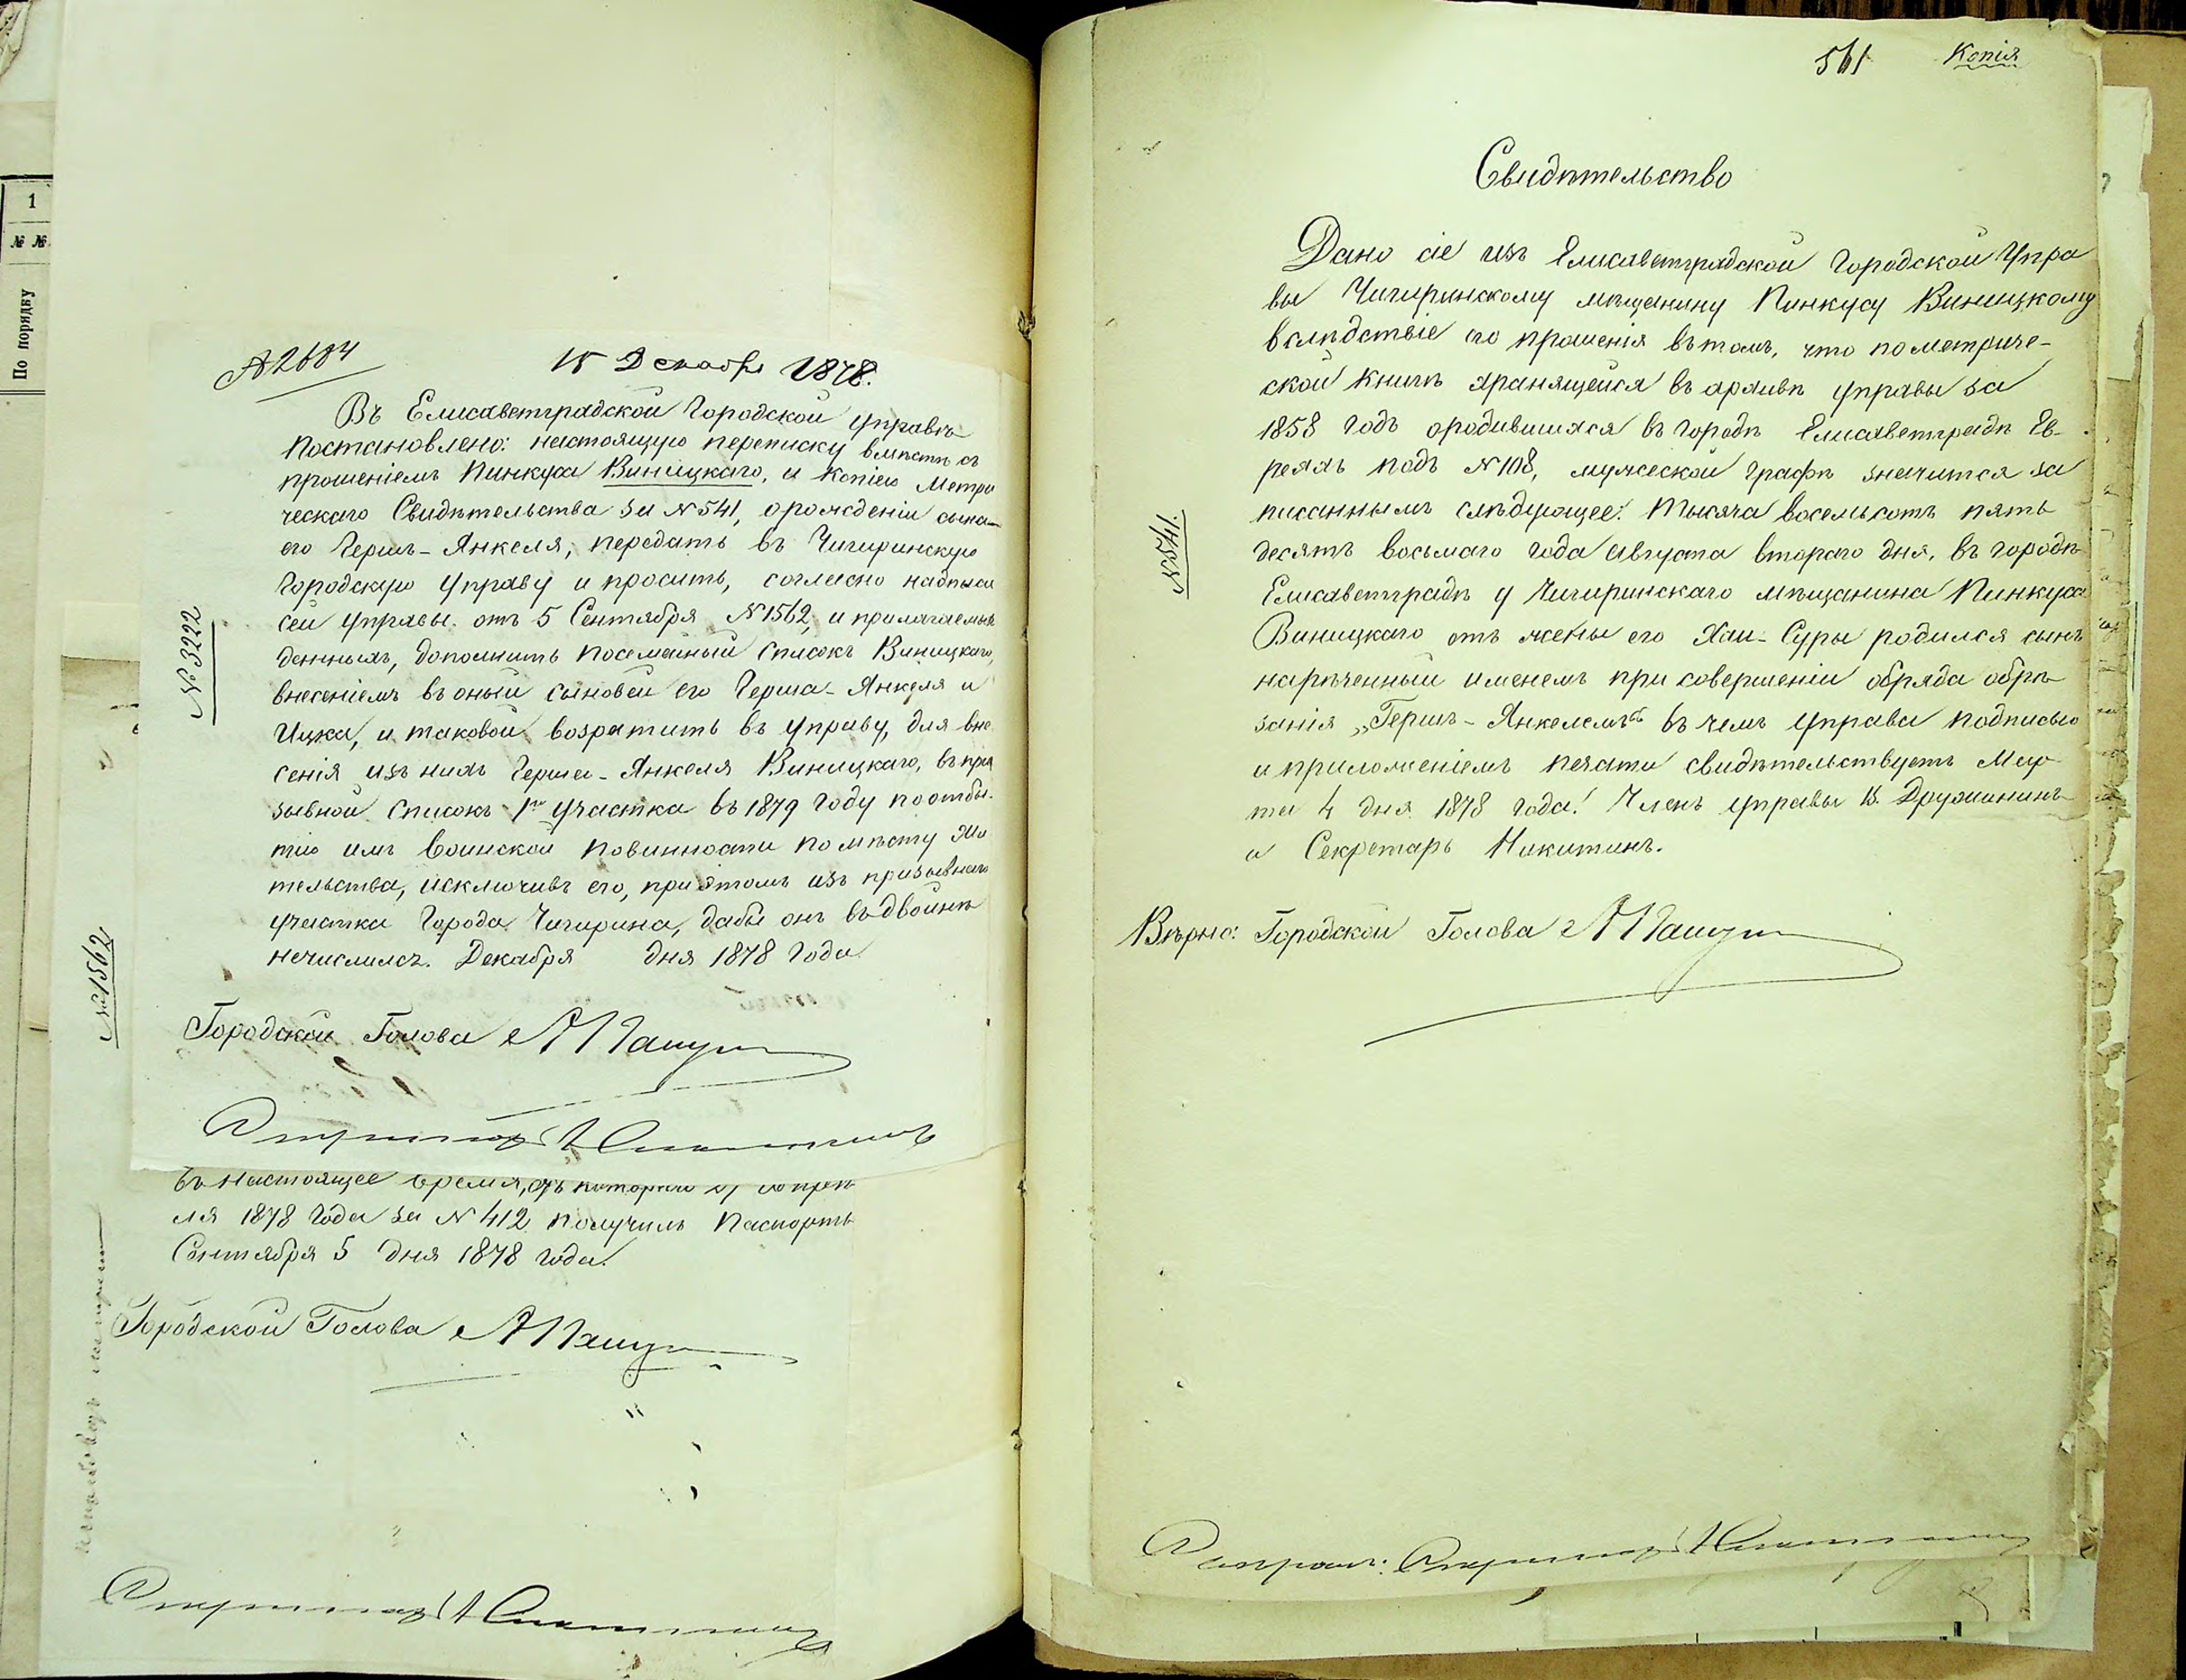 1
№ №
По порядку
№ 2684
15 Декабря 1878.
Въ Елисаветградской Городской Управѣ
Постановлено: настоящую переписку вмѣстѣ съ
прошеніемъ Пинкуса Виницкаго, и копіею Метри
ческаго Свидѣтельства за № 541, орожденіи сына
его Гершъ-Янкеля, передать въ Чигиринскую
Городскую Управу и просить, согласно надписи
сей Управы отъ 5 Сентября № 1562, и прилагаемыхъ
данныхъ, дополнить посемейный Списокъ Виницкаго,
внесеніемъ въ оный сыновей его Герша-Янкеля и
Ицка, и таковой возратить въ Управу, для вне
сенія изъ нихъ Герша-Янкеля Виницкаго, въ при
зывной Списокъ 1го участка въ 1879 году поотбы
тію имъ Воинской повинности по мѣсту жи
тельства, исключивъ его, приэтомъ изъ призывнаго
участка Города Чигирина, дабы онъ въдвойнѣ
нечислился. Декабря дня 1878 Года.
№ 3222
Городской Голова
№ 1562
въ настоящее время,
ля 1878 Года за № 412 получилъ Паспортъ
Сентября 5 дня 1878 года.
Городской Голова
561
Копія
Свидѣтельство
Дано сіе изъ Елисаветградской Городской Упра
вы Чигиринскому мѣщанину Пинкусу Виницкому
вслѣдствіе его прошенія вътомъ, что пометриче-
ской книгѣ хранящейся въ архивѣ управы за
1858 годъ ородившихся въ городѣ Елисаветградѣ Ев-
реяхъ подъ № 108, мужеской графѣ значится за
писаннымъ слѣдующее: Тысяча восемьсотъ пять
десятъ восьмаго года Августа втораго дня, въ городѣ
Елисаветградѣ у Чигиринскаго мѣщанина Пинкуса
Виницкаго отъ жены его Хаи-Суры родился сынъ
нарѣченный именемъ при совершеніи обряда обрѣ
занія „Гершъ-Янкелемъ“ въ чемъ Управа подписью
и приложеніемъ печати свидѣтельствуетъ Мар
та 4 дня 1878 года. Членъ управы В. Дружининъ
и Секретарь Никитинъ.
№ 541.
Вѣрно: Городской Голова